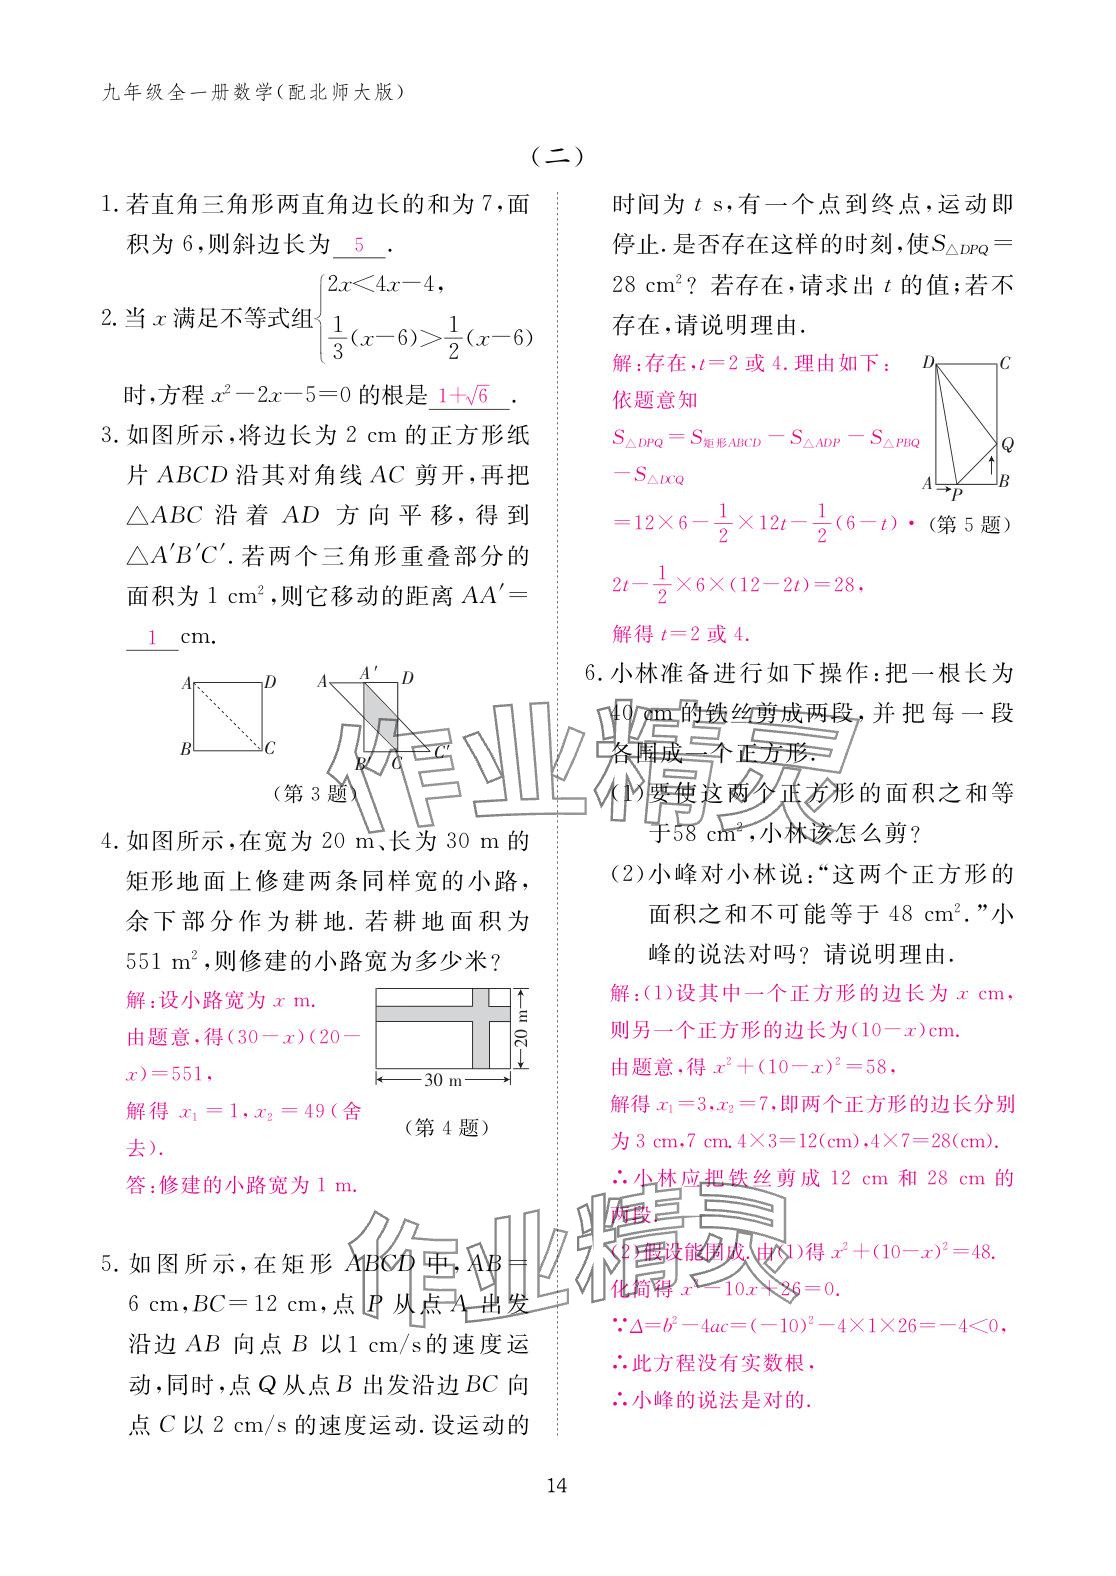 九年级全一册数学(配北师大版)
(二)
1. 若直角三角形两直角边长的和为7,面
积为6,则斜边长为 5 .
2. 当 x 满足不等式组 { 2x<4x-4,
1/3(x-6)>1/2(x-6)
时,方程 x²-2x-5=0 的根是 1+√6 .
3. 如图所示,将边长为 2 cm 的正方形纸
片 ABCD 沿其对角线 AC 剪开,再把
△ABC 沿着 AD 方向平移,得到
△A′B′C′.若两个三角形重叠部分的
面积为 1 cm²,则它移动的距离 AA′=
1 cm.
A D B C
A A′ D B′ C C′
(第 3 题)
4. 如图所示,在宽为 20 m、长为 30 m 的
矩形地面上修建两条同样宽的小路,
余下部分作为耕地. 若耕地面积为
551 m²,则修建的小路宽为多少米?
解:设小路宽为 x m.
由题意,得(30-x)(20-
x)=551,
解得 x₁=1,x₂=49(舍
去).
答:修建的小路宽为 1 m.
20 m
30 m
(第 4 题)
5. 如图所示,在矩形 ABCD 中,AB=
6 cm,BC=12 cm,点 P 从点 A 出发
沿边 AB 向点 B 以1 cm/s的速度运
动,同时,点 Q 从点 B 出发沿边 BC 向
点 C 以 2 cm/s 的速度运动.设运动的
时间为 t s,有一个点到终点,运动即
停止.是否存在这样的时刻,使S△DPQ=
28 cm²? 若存在,请求出 t 的值;若不
存在,请说明理由.
解:存在,t=2 或 4.理由如下:
依题意知
S△DPQ=S矩形ABCD-S△ADP-S△PBQ
-S△DCQ
=12×6-1/2×12t-1/2(6-t)·
2t-1/2×6×(12-2t)=28,
解得 t=2 或 4.
D C Q A P B
(第 5 题)
6. 小林准备进行如下操作:把一根长为
40 cm的铁丝剪成两段,并把每一段
各围成一个正方形.
(1)要使这两个正方形的面积之和等
于58 cm²,小林该怎么剪?
(2)小峰对小林说:“这两个正方形的
面积之和不可能等于 48 cm².”小
峰的说法对吗? 请说明理由.
解:(1)设其中一个正方形的边长为 x cm,
则另一个正方形的边长为(10-x)cm.
由题意,得 x²+(10-x)²=58,
解得 x₁=3,x₂=7,即两个正方形的边长分别
为 3 cm,7 cm.4×3=12(cm),4×7=28(cm).
∴小林应把铁丝剪成 12 cm 和 28 cm 的
两段.
(2)假设能围成.由(1)得 x²+(10-x)²=48.
化简得 x²-10x+26=0.
∵Δ=b²-4ac=(-10)²-4×1×26=-4<0,
∴此方程没有实数根,
∴小峰的说法是对的.
作业精灵
作业精灵
14